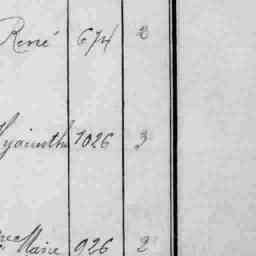 René 674 2
Hyacinthe 1026 3
Marie 926 2